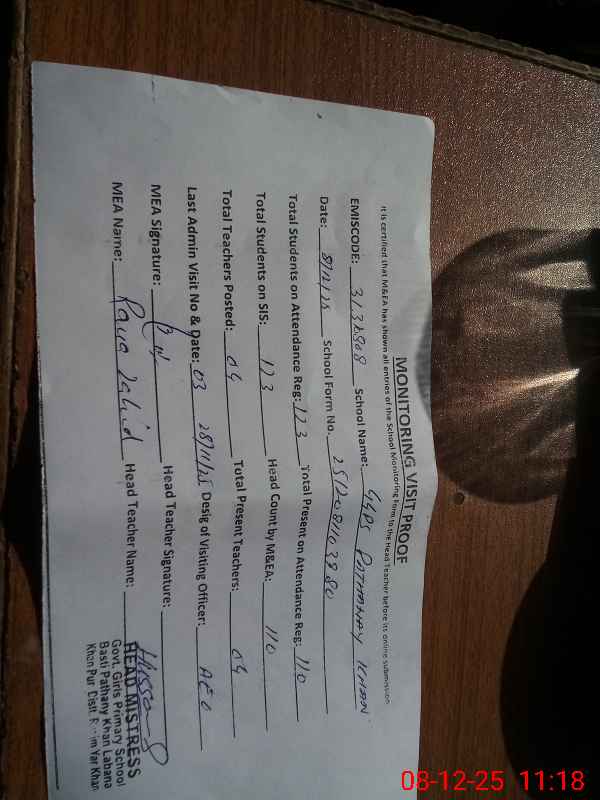 MONITORING VISIT PROOF
It is certified that M&EA has shown all entries of the School Monitoring Form to the Head Teacher before its online submission
EMISCODE: School Name: GGPS PATHANAY KHAN
Date: 8/12/25 School Form No.
Total Students on Attendance Reg: 123 Total Present on Attendance Reg: 110
Total Students on SIS: 123 Head Count by M&EA: 110
Total Teachers Posted: 04 Total Present Teachers: 04
Last Admin Visit No & Date: 03 28/11/25 Desig of Visiting Officer: AEO
MEA Signature: Head Teacher Signature:
MEA Name: Zahid Head Teacher Name:
HEAD MISTRESS
Govt. Girls Primary School
Basti Pathany Khan Labana
Khan Pur Distt. Yar Khan
08-12-25 11:18